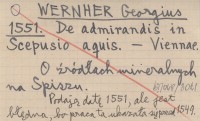 WERNHER Georgius
1551. De admirandis in
Scepusio aquis. – Viennae.
O źródłach mineralnych
na Spiszu.
Podaje datę 1551, ale jest
błędna, bo praca ta ukazała się przed 1549.